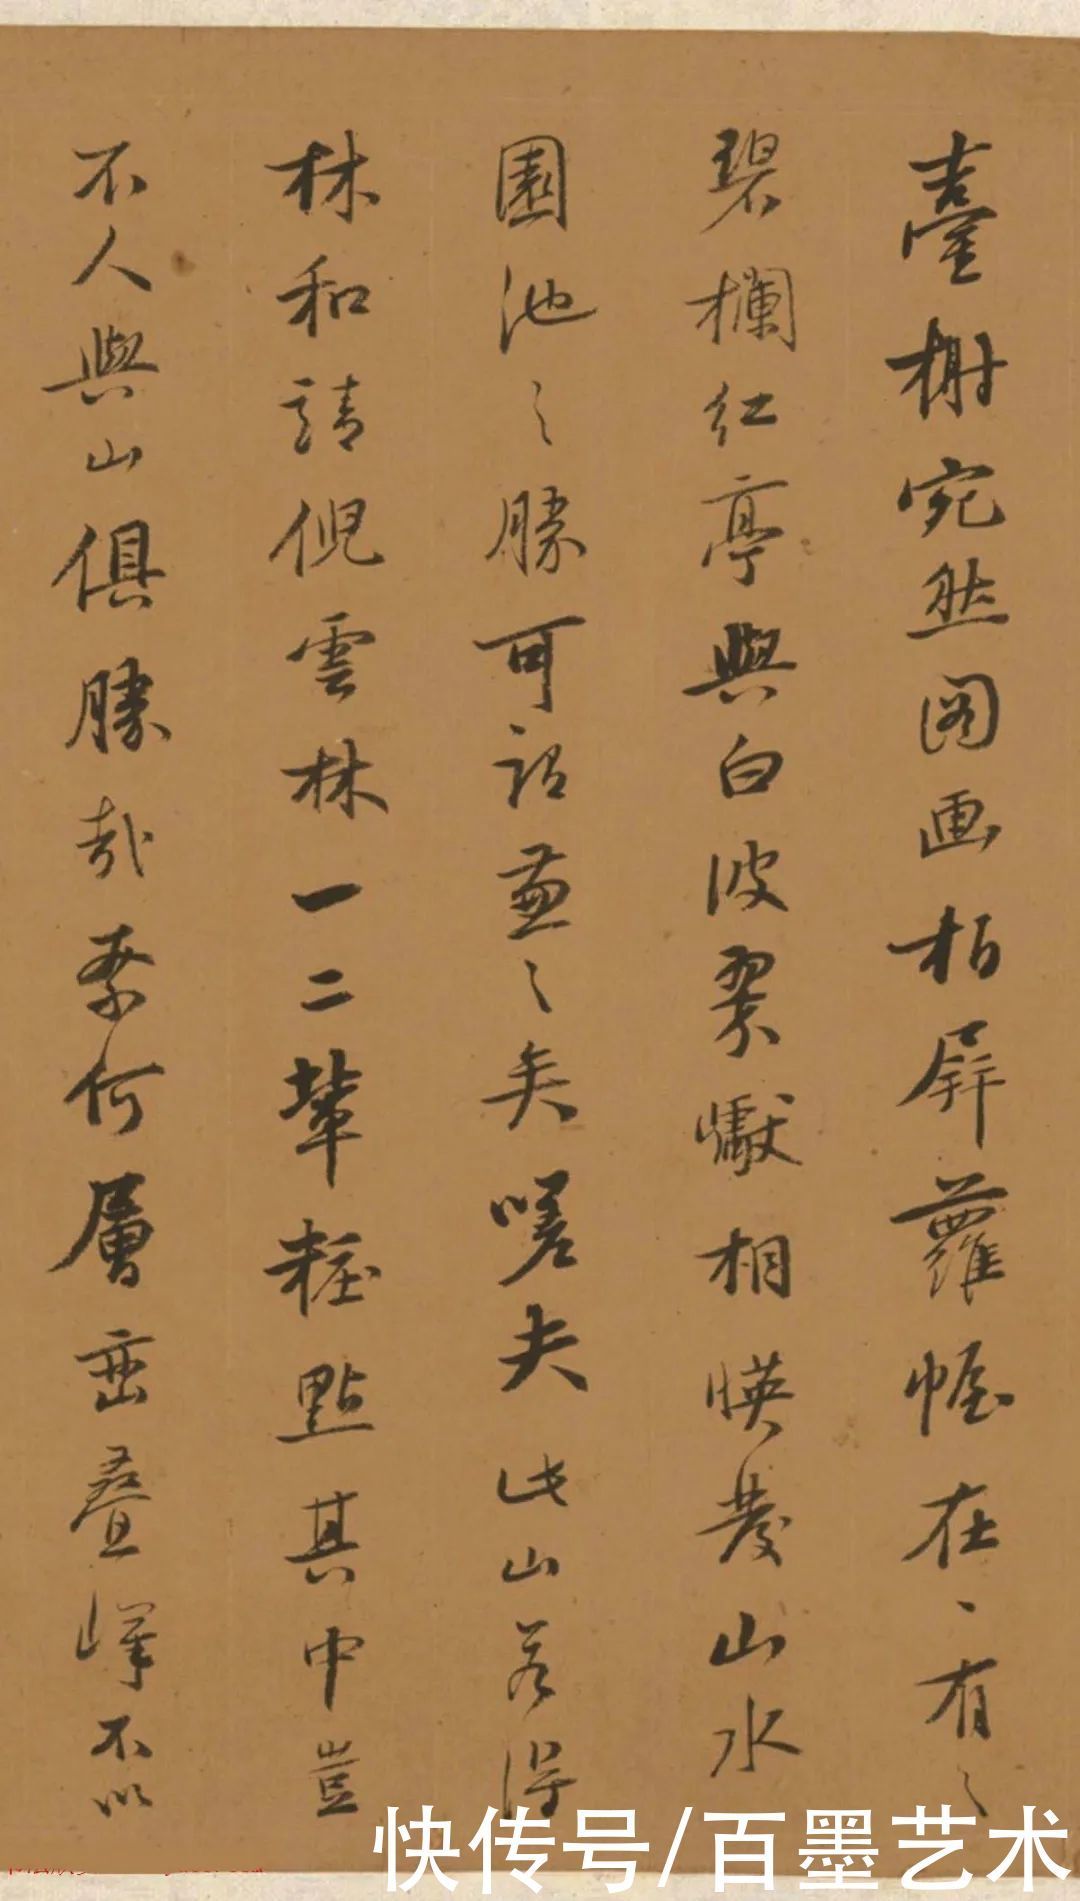 臺榭宛然图画栢屏蘿幄在〻有之
碧欄红亭與白波翠巘相暎发山水
園池之勝可謂兼之矣嗟夫此山若得
林和靖倪雲林一二輩粧點其中豈
不人與山俱勝哉奈何層峦疊嶂不以
快传号/百墨艺术